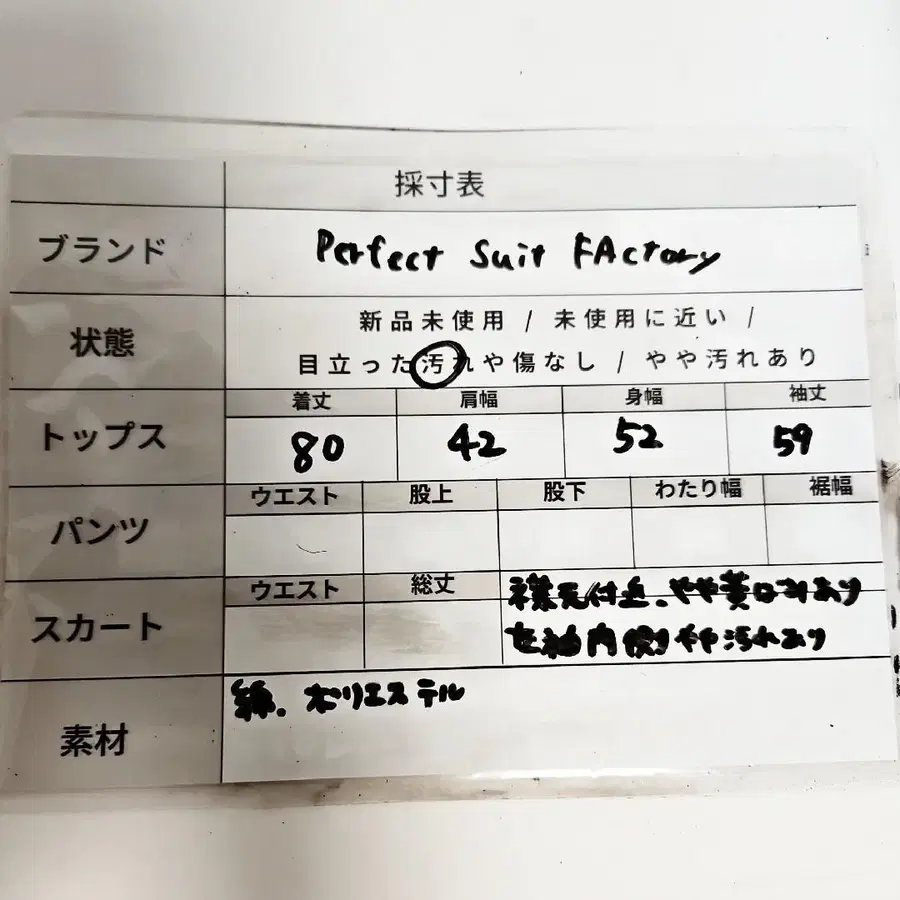 採寸表
ブランド Perfect Suit FActory
状態 新品未使用 / 未使用に近い /
目立った汚れや傷なし / やや汚れあり
着丈 肩幅 身幅 袖丈
トップス 80 42 52 59
ウエスト 股上 股下 わたり幅 裾幅
パンツ
ウエスト 総丈 襟元付近、やや黄ばみあり
スカート 右袖内側やや汚れあり
素材 綿、ポリエステル